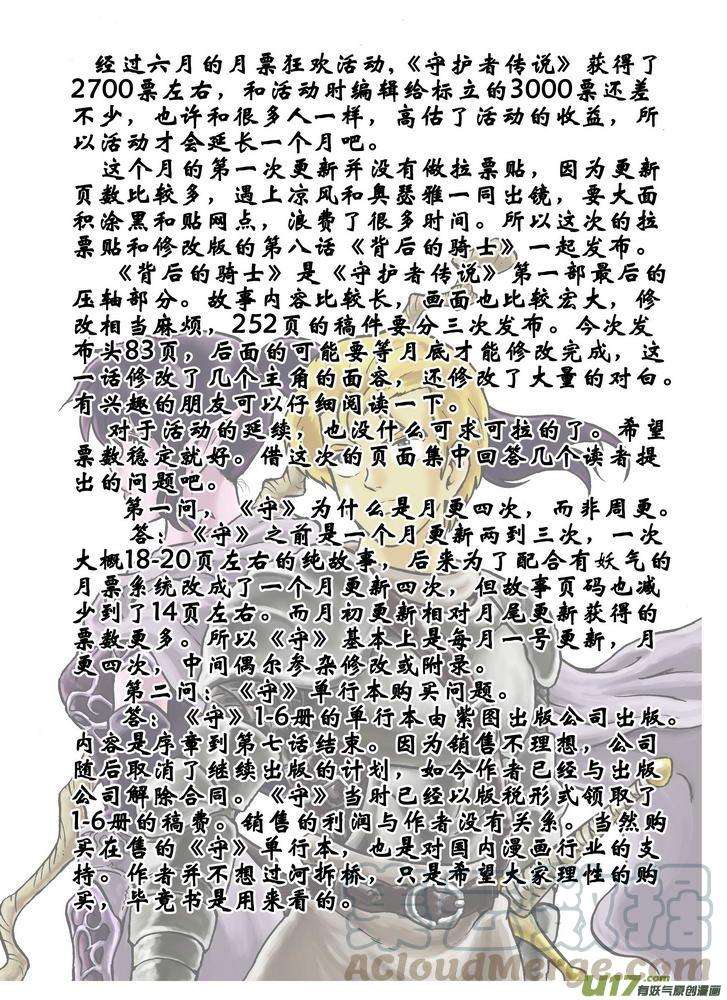 经过六月的月票狂欢活动，《守护者传说》获得了
2700票左右，和活动时编辑给标立的3000票还差
不少，也许和很多人一样，高估了活动的收益，所
以活动才会延长一个月吧。
这个月的第一次更新并没有做拉票贴，因为更新
页数比较多，遇上凉风和奥瑟雅一同出镜，要大面
积涂黑和贴网点，浪费了很多时间。所以这次的拉
票贴和修改版的第八话《背后的骑士》一起发布。
《背后的骑士》是《守护者传说》第一部最后的
压轴部分。故事内容比较长，画面也比较宏大，修
改相当麻烦，252页的稿件要分三次发布。今次发
布头83页，后面的可能要等月底才能修改完成，这
一话修改了几个主角的面容，还修改了大量的对白。
有兴趣的朋友可以仔细阅读一下。
对于活动的延续，也没什么可求可拉的了。希望
票数稳定就好。借这次的页面集中回答几个读者提
出的问题吧。
第一问，《守》为什么是月更四次，而非周更。
答：《守》之前是一个月更新两到三次，一次
大概18-20页左右的纯故事，后来为了配合有妖气的
月票系统改成了一个月更新四次，但故事页码也减
少到了14页左右。而月初更新相对月尾更新获得的
票数更多。所以《守》基本上是每月一号更新，月
更四次，中间偶尔参杂修改或附录。
第二问：《守》单行本购买问题。
答：《守》1-6册的单行本由紫图出版公司出版。
内容是序章到第七话结束。因为销售不理想，公司
随后取消了继续出版的计划，如今作者已经与出版
公司解除合同。《守》当时已经以版税形式领取了
1-6册的稿费。销售的利润与作者没有关系。当然购
买在售的《守》单行本，也是对国内漫画行业的支
持。作者并不想过河拆桥，只是希望大家理性的购
买，毕竟书是用来看的。
AcloudMerge.com
U17.com
有妖气原创漫画